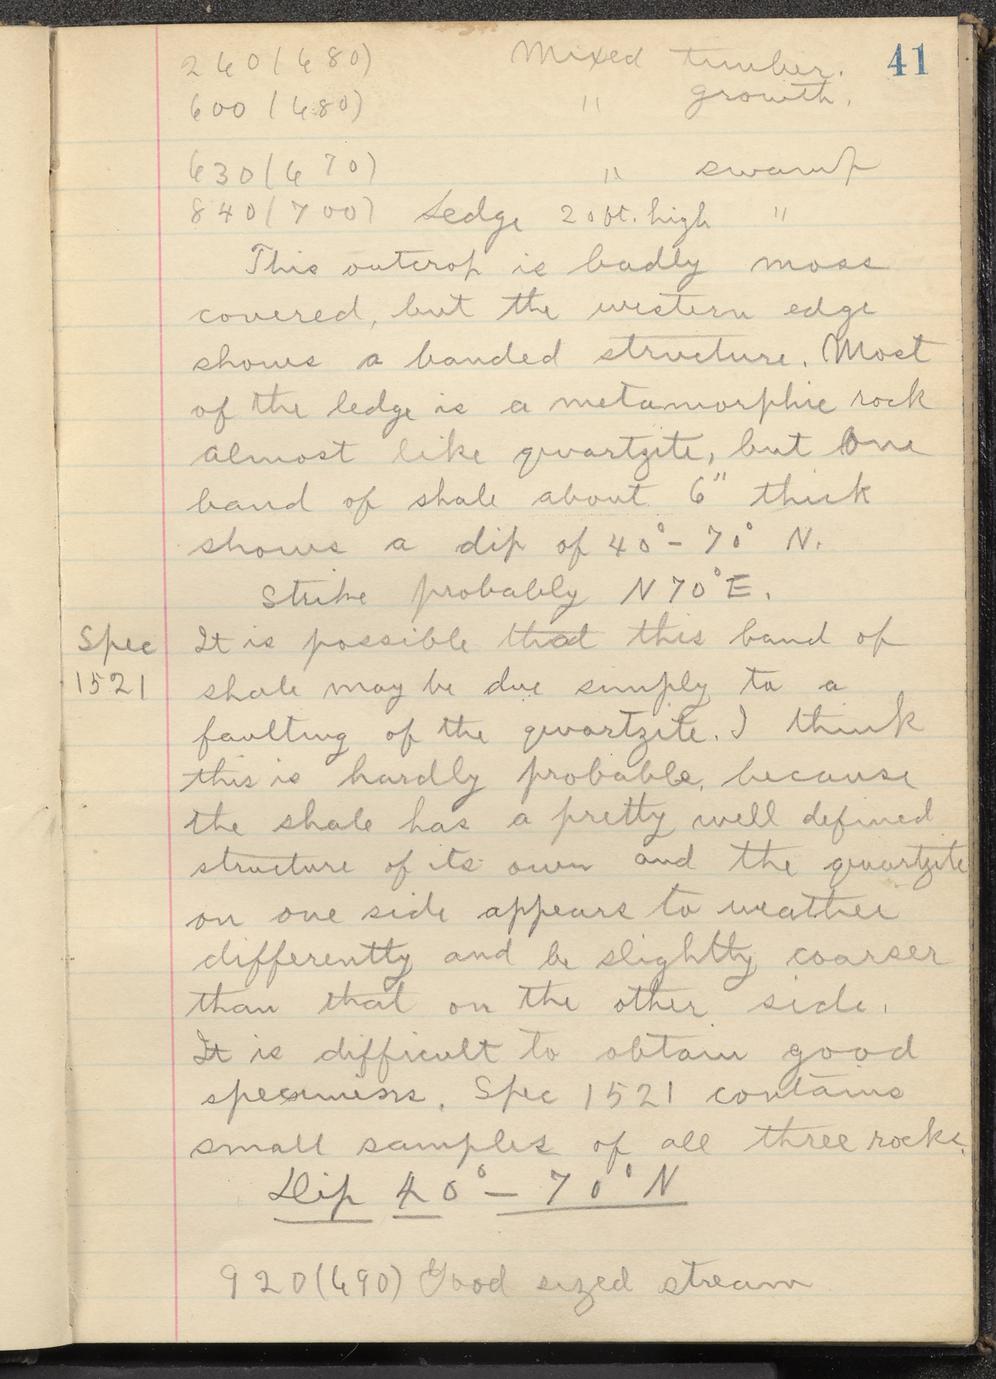 41
240(680) Mixed timber.
600(680) " growth.
630(670) " swamp
840(700) Ledge 20ft. high "
This outcrop is badly moss
covered, but the western edge
shows a banded structure. Most
of the ledge is a metamorphic rock
almost like quartzite, but one
band of shale about 6" thick
shows a dip of 40°- 70° N.
Strike probably N 70° E.
Spec
1521
It is possible that this band of
shale may be due simply to a
faulting of the quartzite. I think
this is hardly probable, because
the shale has a pretty well defined
structure of its own and the quartzite
on one side appears to weather
differently and be slightly coarser
than that on the other side.
It is difficult to obtain good
specimens. Spec 1521 contains
small samples of all three rocks.
Dip 40° - 70° N
920(690) Good sized stream